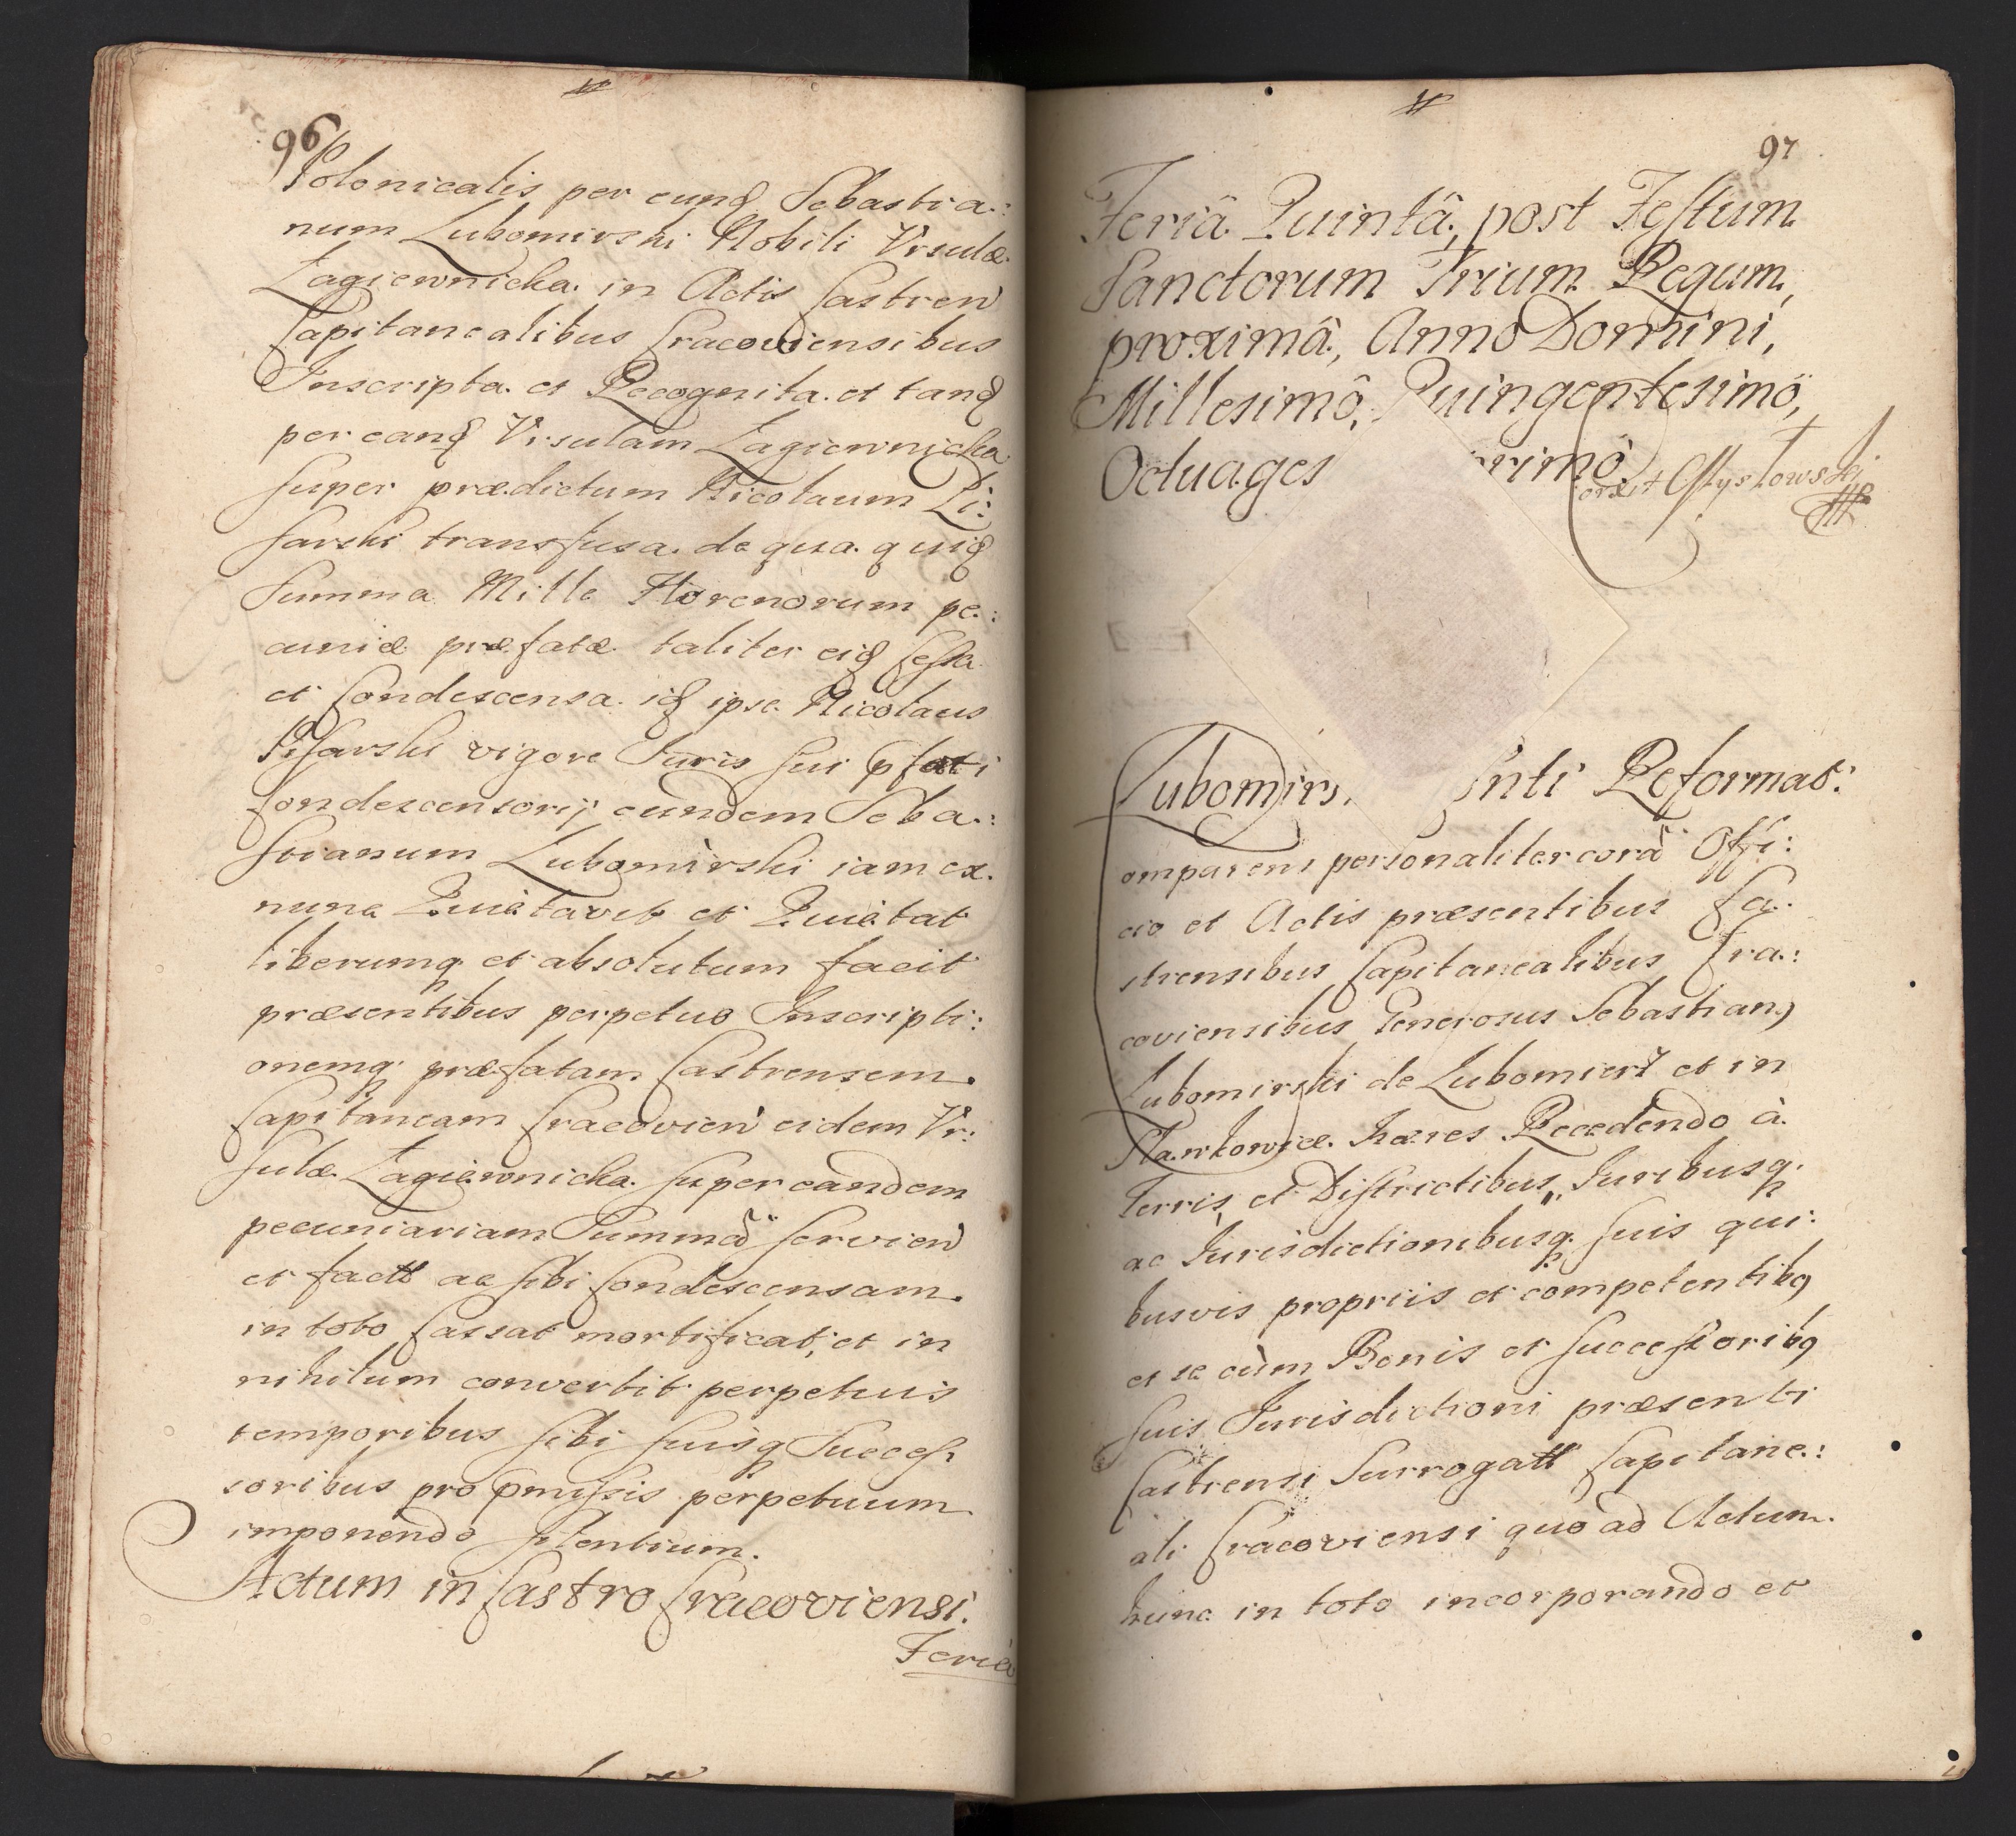 96
Polonicalis per eund Sebastia:
num Lubomirski Nobili Vrsulæ
Łagiewnicka in Actis Castren
Capitanealibus Cracoviensibus
Inscripta et Recognita et tand
per eand Vrsulam Łagiewnicka
super prædictum Nicolaum Pi:
sarski transfusa de qua quid
Summa Mille Florenorum pe:
cuniæ præfatæ taliter eid Cessa
et Condescensa id ipse Nicolaus
Pisarski vigore Iuris sui pfati
Condescensorij eundem Seba:
stianum Lubomirski iam ex
nunc Quietavit et Quietat
liberumq et absolutum facit
præsentibus perpetuo Inscripti:
onemq præfatam Castrensem
Capitaneam Cracovien eidem Vr:
sulæ Łagiewnicka super eandem
pecuniariam Summã servien
et factt ac sibi Condescensam
in toto Cassat mortificat, et in
nihilum convertit perpetuis
temporibus sibi suisq Succes
soribus pro pmissis perpetuum
imponendo silentium.
Actum in Castro Cracoviensi.
Feriâ
97
Feriâ Quintâ, post Festum
Sanctorum Trium Regum,
proximâ, Anno Domini,
Millesimô, Quingentesimô,
Octuages rimô
Lubomirs. Inti Reformat:
omparens personaliter corã Offi:
cio et Actis præsentibus Ca:
strensibus Capitanealibus Cra:
coviensibus Generosus Sebastian9
Lubomirski de Lubomierz et in
Sławkowice hæres Recedendo à
Terris et Districtibus, Iuribusq
ac Iurisdictionibusq suis qui:
busvis propriis et competentib9
et se cùm Bonis et successorib9
suis Iurisdictioni præsenti
Castrensi Surrogatt Capitane:
ali Cracoviensi quo ad Actum
hunc in toto incorporando et